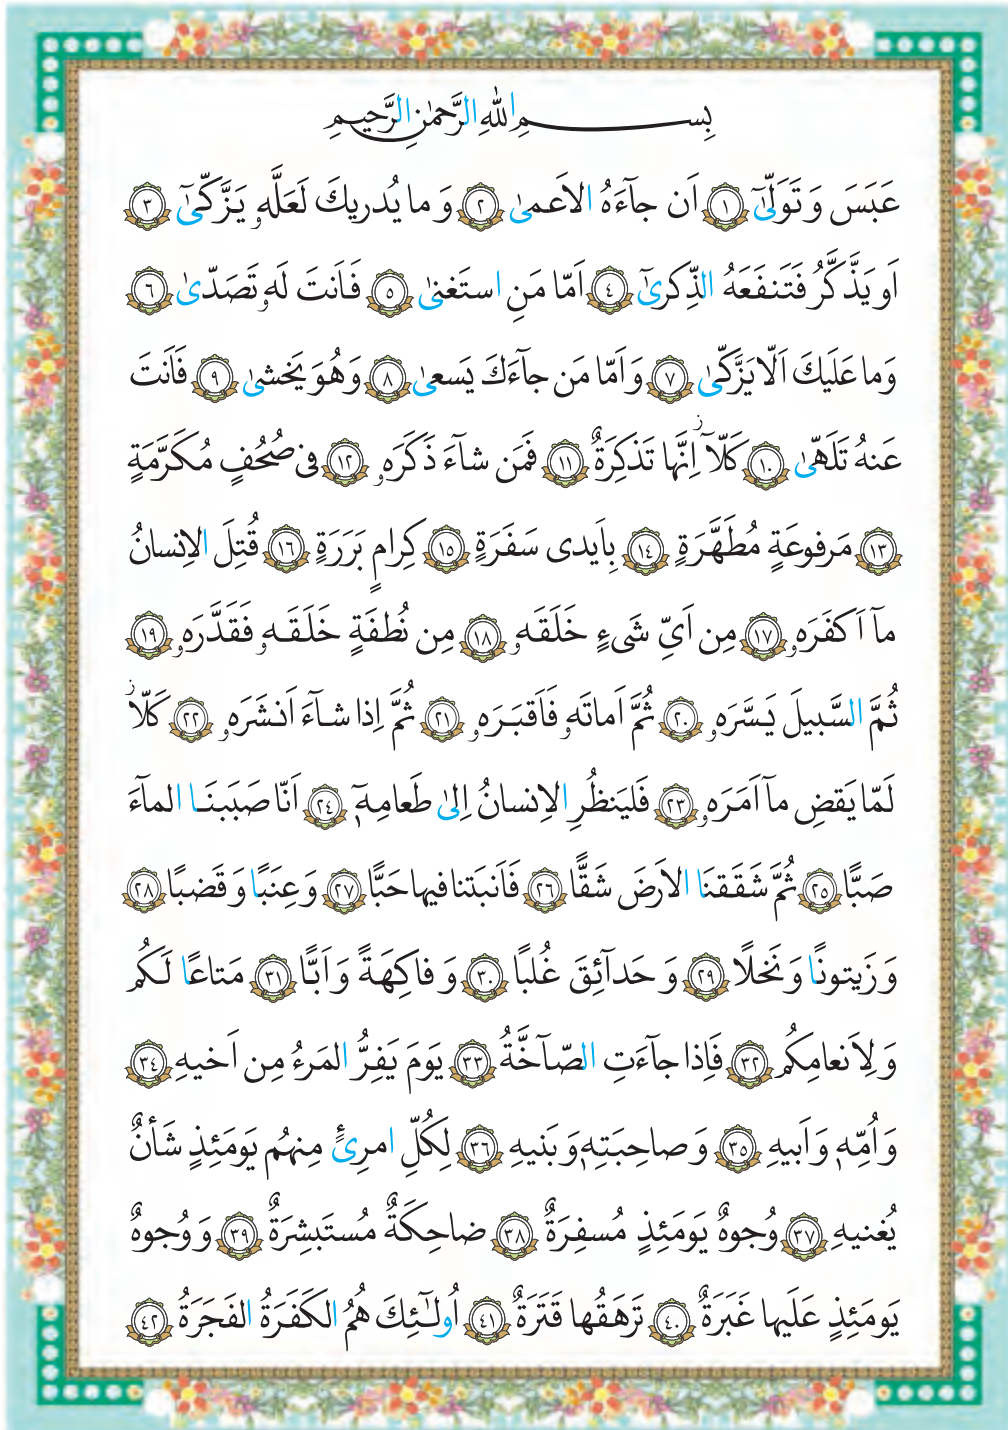 بِسمِ اللّٰهِ الرَّحمٰنِ الرَّحيمِ
عَبَسَ وَ تَوَلّىٰٓ ﴿١﴾ اَن جآءَهُ الاَعمىٰ ﴿٢﴾ وَ ما يُدريكَ لَعَلَّهو يَزَّكّىٰٓ ﴿٣﴾
اَو يَذَّكَّرُ فَتَنفَعَهُ الذِّكرىٰٓ ﴿٤﴾ اَمّا مَنِ استَغنىٰ ﴿٥﴾ فَاَنتَ لَهو تَصَدّىٰ ﴿٦﴾
وَما عَلَيكَ اَلّا يَزَّكّىٰ ﴿٧﴾ وَ اَمّا مَن جآءَكَ يَسعىٰ ﴿٨﴾ وَ هُوَ يَخشىٰ ﴿٩﴾ فَاَنتَ
عَنهُ تَلَهّىٰ ﴿١٠﴾ كَلّاۤ ز اِنَّها تَذكِرَةٌ ﴿١١﴾ فَمَن شآءَ ذَكَرَه و ﴿١٢﴾ فى صُحُفٍ مُكَرَّمَةٍ
﴿١٣﴾ مَرفوعَةٍ مُطَهَّرَةٍ ﴿١٤﴾ بِاَيدى سَفَرَةٍ ﴿١٥﴾ كِرامٍ بَرَرَةٍ ﴿١٦﴾ قُتِلَ الاِنسانُ
مآ اَكفَرَه و ﴿١٧﴾ مِن اَىِّ شَىءٍ خَلَقَه و ﴿١٨﴾ مِن نُطفَةٍ خَلَقَه و فَقَدَّرَه و ﴿١٩﴾
ثُمَّ السَّبيلَ يَسَّرَه و ﴿٢٠﴾ ثُمَّ اَماتَه و فَاَقبَرَه و ﴿٢١﴾ ثُمَّ اِذا شآءَ اَنشَرَه و ﴿٢٢﴾ كَلّا ز
لَمّا يَقضِ مآ اَمَرَه و ﴿٢٣﴾ فَليَنظُرِ الاِنسانُ اِلىٰ طَعامِهٓ ﴿٢٤﴾ اَنّا صَبَبنَا الماۤءَ
صَبًّا ﴿٢٥﴾ ثُمَّ شَقَقنَا الاَرضَ شَقًّا ﴿٢٦﴾ فَاَنبَتنا فيها حَبًّا ﴿٢٧﴾ وَ عِنَبًا وَ قَضبًا ﴿٢٨﴾
وَ زَيتونًا وَ نَخلًا ﴿٢٩﴾ وَ حَدآئِقَ غُلبًا ﴿٣٠﴾ وَ فاكِهَةً وَ اَبًّا ﴿٣١﴾ مَتاعًا لَكُم
وَ لِاَنعامِكُم ﴿٣٢﴾ فَاِذا جآءَتِ الصّآخَّةُ ﴿٣٣﴾ يَومَ يَفِرُّ المَرءُ مِن اَخيهِ ﴿٣٤﴾
وَ اُمِّهٖ وَ اَبيهِ ﴿٣٥﴾ وَ صاحِبَتِهٖ وَ بَنيهِ ﴿٣٦﴾ لِكُلِّ امرِئٍ مِنهُم يَومَئِذٍ شَأنٌ
يُغنيهِ ﴿٣٧﴾ وُجوهٌ يَومَئِذٍ مُسفِرَةٌ ﴿٣٨﴾ ضاحِكَةٌ مُستَبشِرَةٌ ﴿٣٩﴾ وَ وُجوهٌ
يَومَئِذٍ عَلَيها غَبَرَةٌ ﴿٤٠﴾ تَرهَقُها قَتَرَةٌ ﴿٤١﴾ اُولـٰٓئِكَ هُمُ الكَفَرَةُ الفَجَرَةُ ﴿٤٢﴾